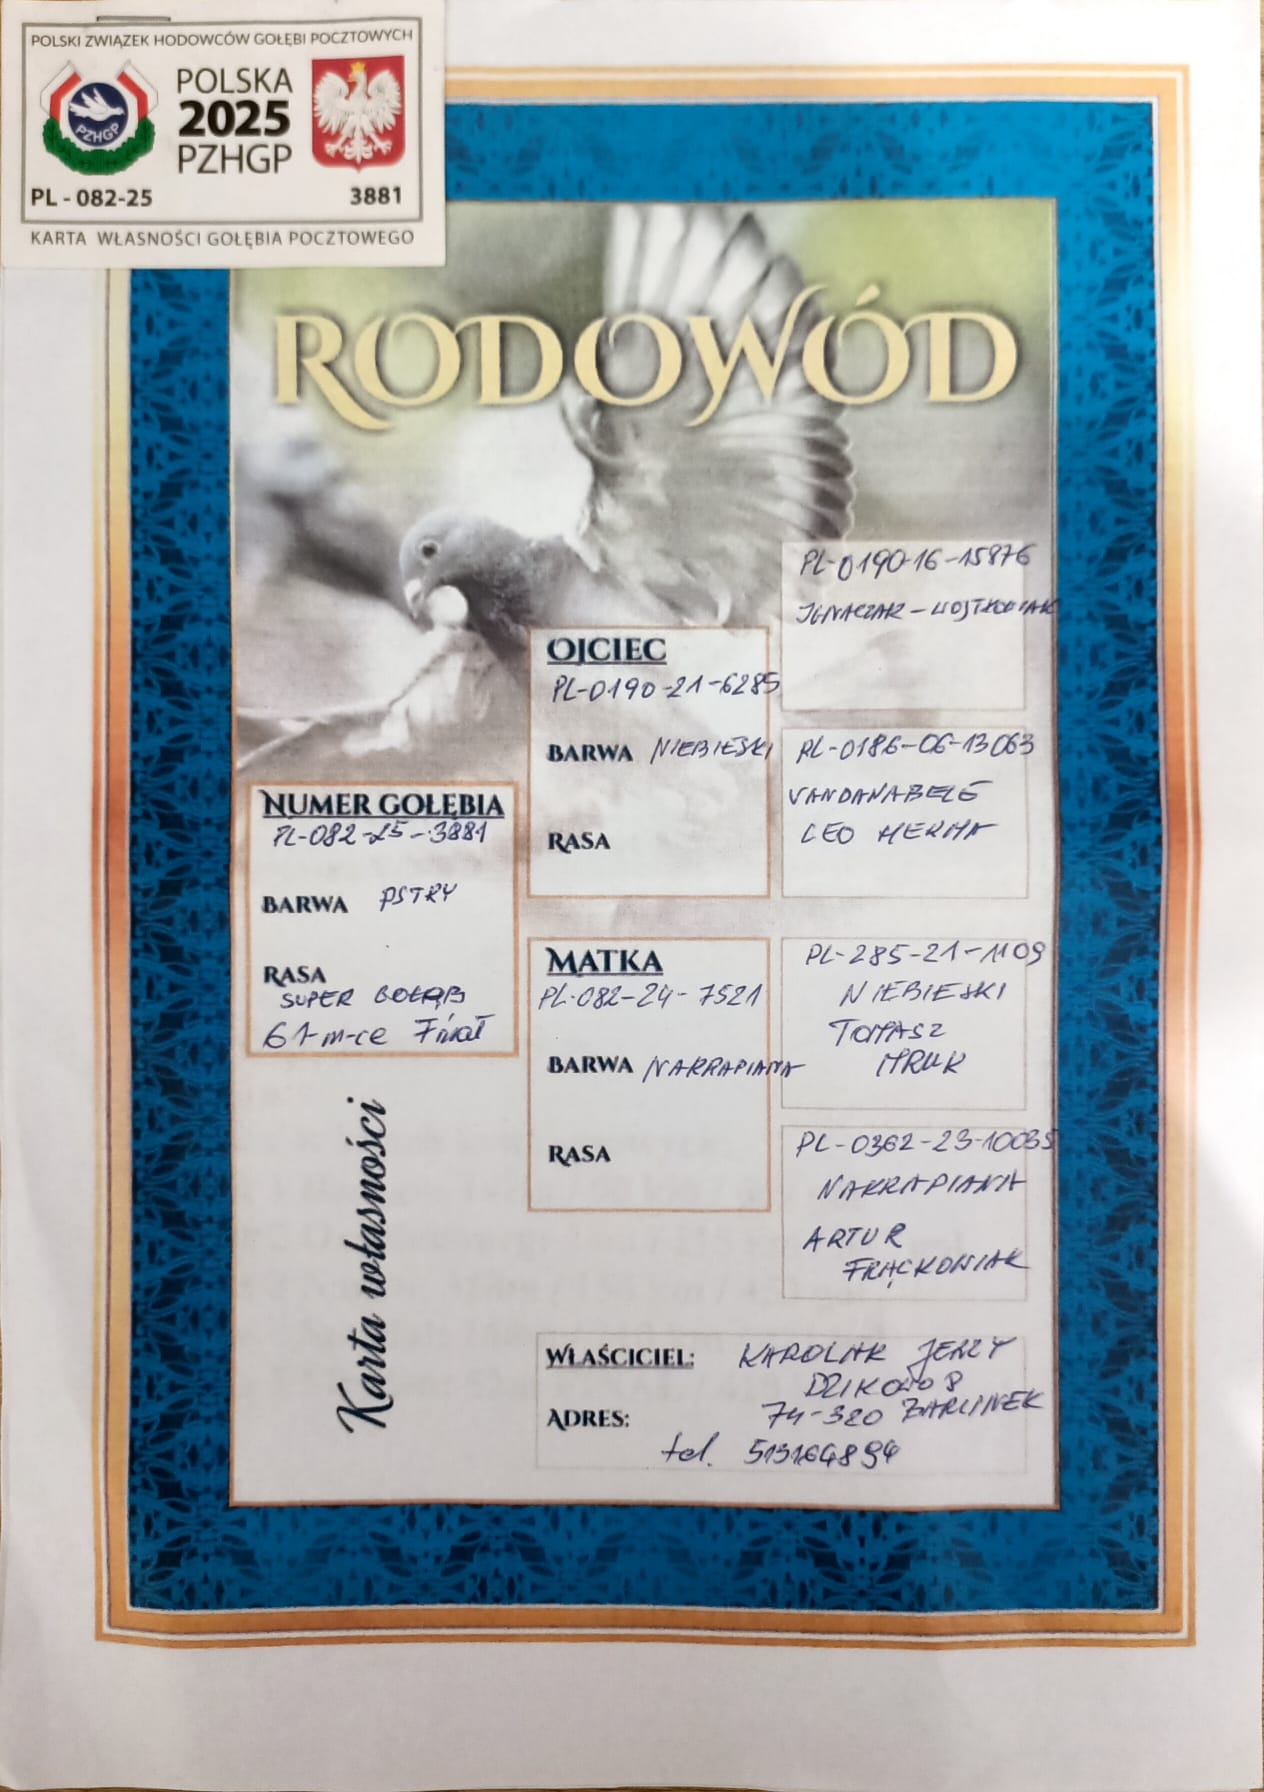 POLSKI ZWIĄZEK HODOWCÓW GOŁĘBI POCZTOWYCH
PZHGP
POLSKA
2025
PZHGP
PL - 082-25 3881
KARTA WŁASNOŚCI GOŁĘBIA POCZTOWEGO
RODOWÓD
PL-0190-16-15876
IGNACZAK-WOJTKOWIAK
OJCIEC
PL-0190-21-6285
BARWA NIEBIESKI
RASA
PL-0186-06-13063
VANDANABELE
LEO HERMA
NUMER GOŁĘBIA
PL-082-25-3881
BARWA PSTRY
RASA
SUPER GOŁĄB
61-m-ce Finał
MATKA
PL-082-24-7521
BARWA NAKRAPIANA
RASA
PL-285-21-1109
NIEBIESKI
TOMASZ
MRUK
PL-0362-23-10035
NAKRAPIANA
ARTUR
FRĄCKOWIAK
Karta własności
WŁAŚCICIEL: KAROLAK JERZY
DZIKOWO 8
ADRES: 74-320 BARLINEK
tel. 513164894